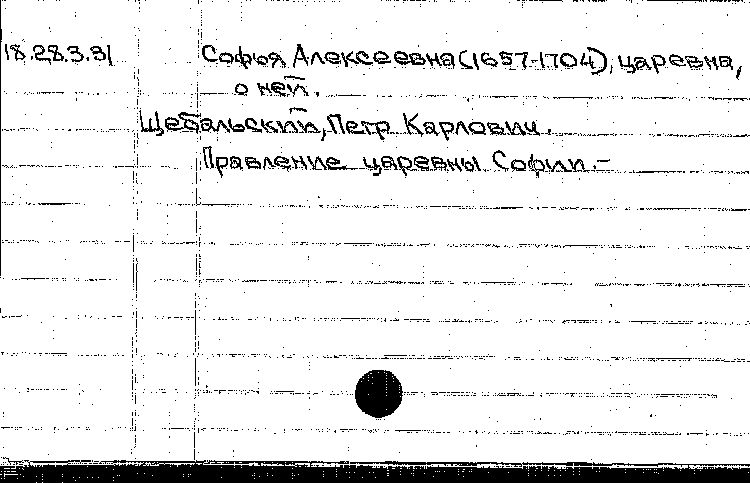 18.28.3.31 Софья Алексеевна (1657-1704), царевна,
о ней.
Щебальский, Петр Карлович.
Правление царевны Софии.-